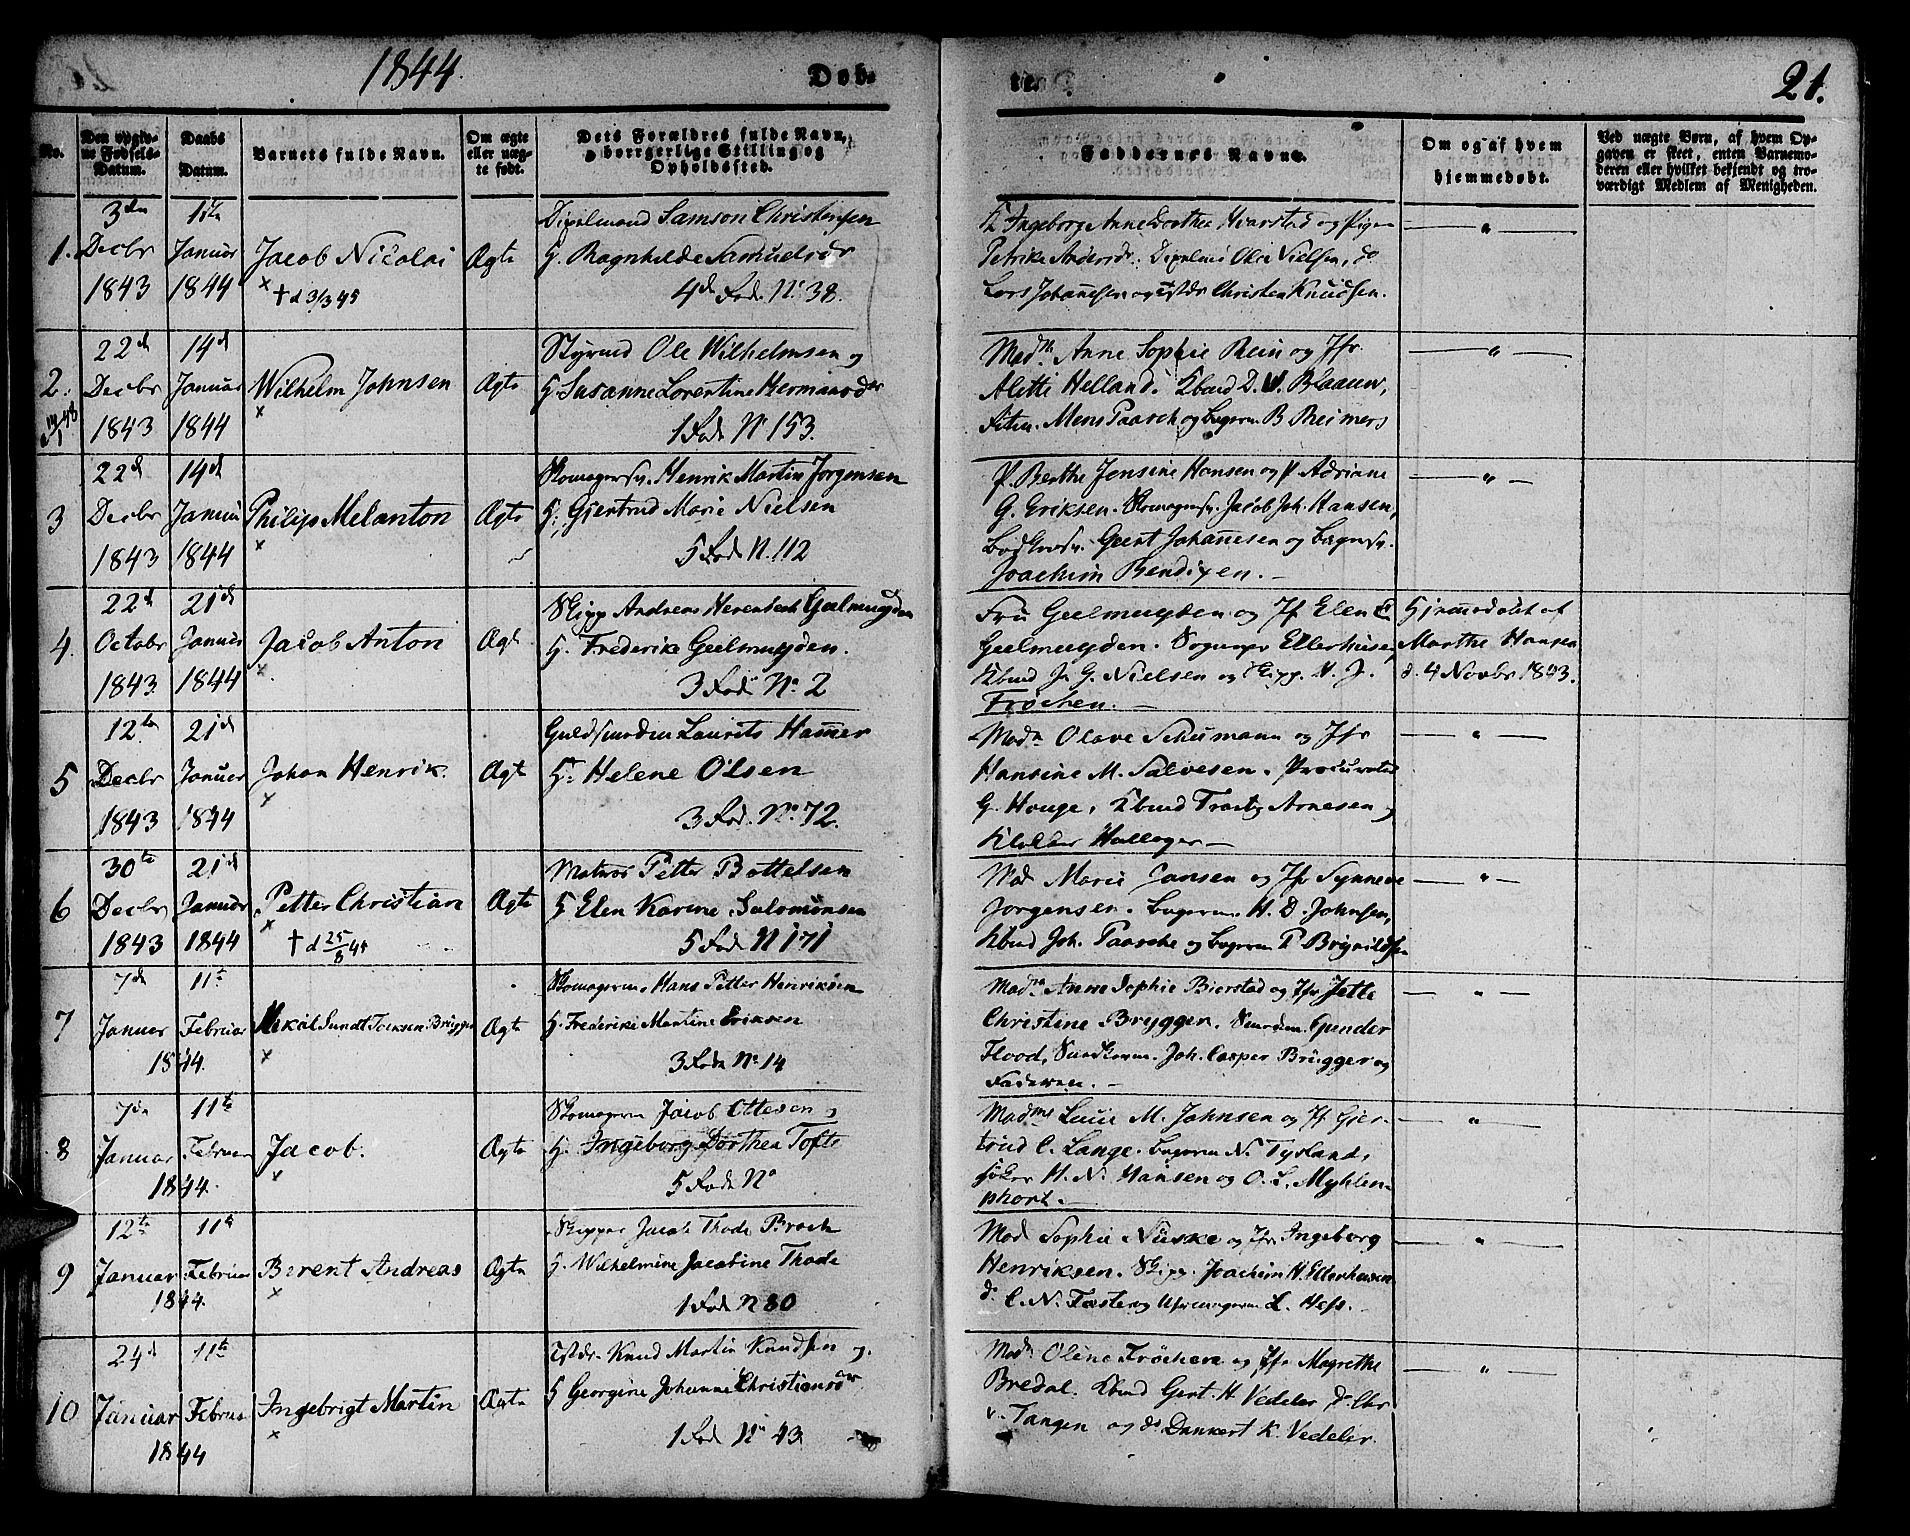 1844
Døb-
te.
21.
No.
Den opgiv-
ne Fødsels-
Datum.
Daabs
Datum.
Barnets fulde Navn.
Om ægte
eller uæg-
te født.
Dets Forældres fulde Navn,
borgerlige Stilling og
Opholdssted.
Faddernes Navne.
Om og af hvem
hjemmedøbt.
Ved uægte Børn, af hvem Op-
gaven er skeet, enten Barnemo-
deren eller hvilket bekjendt og tro-
værdigt Medlem af Menigheden.
1.
3die
Decbr
1843
1ste
Januar
1844
Jacob Nicolai
† d 3/3 45
Ægte
Samson Christensen
H. Ragnhilde Samuelsdr
4de Fod. No 38.
K Ingeborg Anne Dorthea Hvarstad og Pigen
Petrike Andersdr. Ole Nielsen, do
Lars Johannesen og Christen Knudsen.
2.
22d
Decbr
1843
14d
Januar
1844
Wilhelm Johnsen
Ægte
Styrmd Ole Wilhelmsen og
H Susanne Lorentine Hermansdr
1 Fode No 153.
Madm Anne Sophie Rein og Jfr
Alette Helland. Kbmd D. W. Blaauw,
Mens Paasch og Bagerm. B Reimers
3
22d
Decbr
1843
14d
Januar
1844
Philip Melanton
Ægte
Skomagersv. Henrik Martin Jørgensen
H. Gjertrud Marie Nielsen
5 Fode N. 112
P. Berthe Jensine Hansen og P. Adriane
G. Eriksen. Skomagersv. Jacob Joh. Hansen,
Geert Johannesen og Bagersv.
Joachim Bendixen.
4.
22d
Octobr
1843
21d
Januar
1844
Jacob Anton
Ægte
Skipp Andreas Herenbech Geelmuyden
H. Frederike Geelmuyden.
3 Fode No. 2
Fru Geelmuyden og Jf Elen E
Geelmuyden. Ellerhusen,
Kbmd J. G. Nielsen og Skipp. H. J.
Frøchen.
Hjemmedøbt af
Marthe Hansen
d. 4 Novbr 1843.
5
12te
Decbr
1843
21d
Januar
1844
Johan Henrik.
Ægte
Guldsmeden Laurits Hammer
H. Helene Olsen
3 Fod. No. 72.
Madm Olave Schumann og Jfr
Hansine M. Salvesen. Procurator
G. Houge, Kbmd Arnesen og
Hallager
6
30te
Decbr
1843
21d
Januar
1844
Petter Christian
† d 25/8 45
Ægte
Matros Petter Bottelsen
H Elen Karine Salomonsen
5 Fode N 171
Mad Marie Jansen og Jfr Synneve
Jørgensen. Bagerm. H. D. Johnsen,
Kbmd Joh. Paasche og Bagerm P Brynildsen
7
7de
Januar
1844.
11te
Februar
Mikal Sundt Isaksen Brügger
Ægte
Skomagerm. Hans Petter Henriksen
H. Frederike Martine Eriksen
3 Fode No 14
Madm Anne Sophie Bierstad og Jfr Jette
Christine Brygger.
Flood, Joh. Casper Brügger og
Faderen.
8
7de
Januar
1844.
11te
Februar
Jacob.
Ægte
Skomagerm Jacob Ottesen og
H. Ingeborg Dorthea Tofte
5 Fode No
Madme Luise M. Johnsen og Jf Gjer-
trud C. Lange. Bagerm N. Tysland,
H. N. Hansen og O. L. Myhlen-
phort.
9
12te
Januar
1844.
11te
Februar
Berent Andreas
Ægte
Skipper Jacob Thode Broch
H. Wilhelmine Jacobine Thode
1 Fode N 80
Mad Sophie Niiske og Jfr Ingeborg
Henriksen. Skipp. Joachim H. Ellerhusen
do C. N. Faste og Uhrmagerm L. Hess.
10
24d
Januar
1844
11te
Februar
Ingebrigt Martin
Ægte
Knud Martin Knudsen og
H Georgine Johanne Christiansdr
1 Fode No 43
Madm Oline Frøchen og Jfr Magrethe
Bredal. Kbmd Gert H Vedeler do Chr
v. Tangen og do Dankert K. Vedeler.